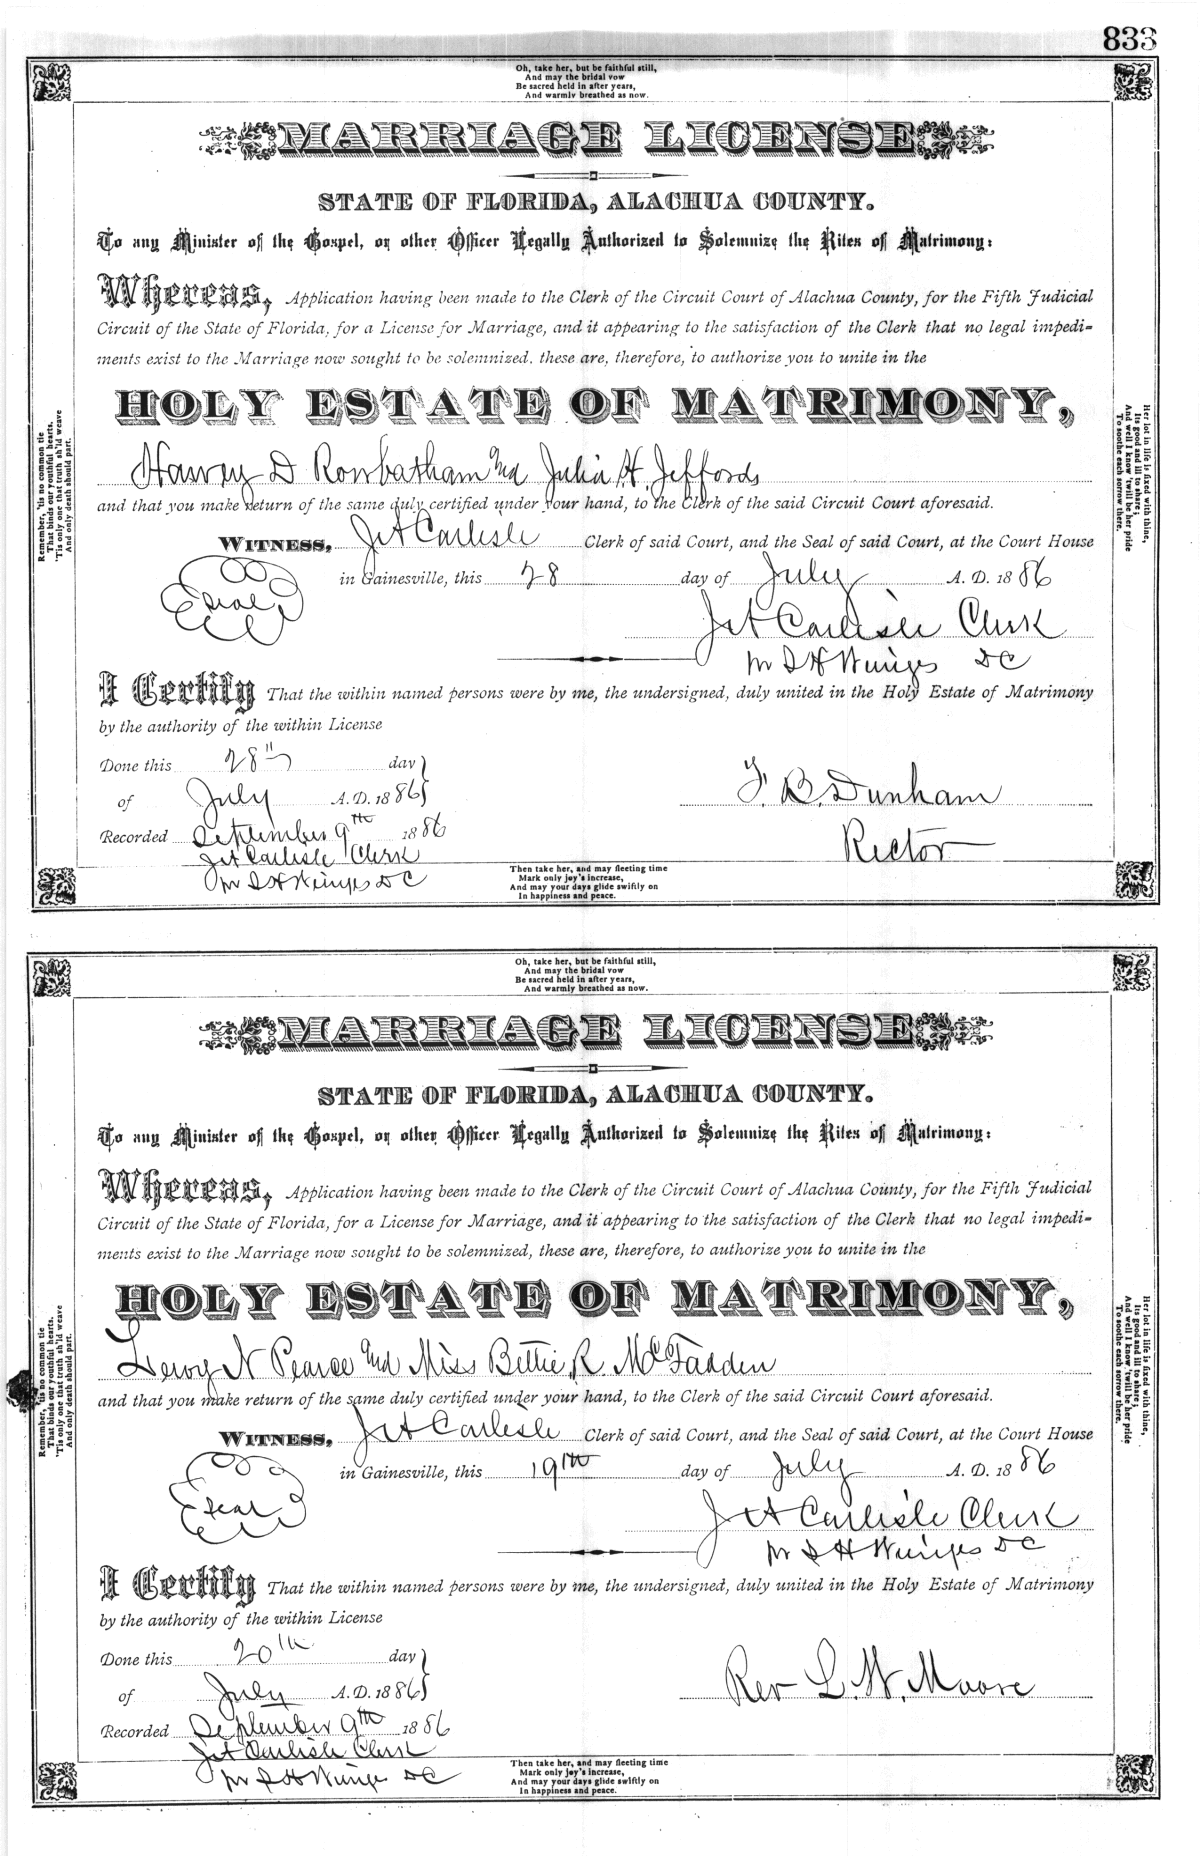 833
Oh, take her, but be faithful still,
And may the bridal vow
Be sacred held in after years,
And warmly breathed as now.
MARRIAGE LICENSE
STATE OF FLORIDA, ALACHUA COUNTY.
To any Minister of the Gospel, or other Officer Legally Authorized to Solemnize the Rites of Matrimony:
Whereas, Application having been made to the Clerk of the Circuit Court of Alachua County, for the Fifth Judicial
Circuit of the State of Florida, for a License for Marriage, and it appearing to the satisfaction of the Clerk that no legal impedi-
ments exist to the Marriage now sought to be solemnized, these are, therefore, to authorize you to unite in the
HOLY ESTATE OF MATRIMONY,
Harvey D Rowbatham and Julia H. Jeffords
and that you make return of the same duly certified under your hand, to the Clerk of the said Circuit Court aforesaid.
WITNESS, J A Carlisle Clerk of said Court, and the Seal of said Court, at the Court House
Seal
in Gainesville, this 28 day of July A. D. 1886
J A Carlisle Clerk
pr S H Wienges DC
I Certify That the within named persons were by me, the undersigned, duly united in the Holy Estate of Matrimony
by the authority of the within License
Done this 28th day
of July A. D. 1886
F. B. Dunham
Recorded September 9th 1886
Rector
J A Carlisle Clerk
pr S H Wienges DC
Then take her, and may fleeting time
Mark only joy's increase,
And may your days glide swiftly on
In happiness and peace.
Remember, 'tis no common tie
That binds our youthful hearts,
'Tis only one that truth sh'ld weave
And only death should part.
Her lot in life is fixed with thine,
Its good and ill to share;
And well I know 'twill be her pride
To soothe each sorrow there.
Oh, take her, but be faithful still,
And may the bridal vow
Be sacred held in after years,
And warmly breathed as now.
MARRIAGE LICENSE
STATE OF FLORIDA, ALACHUA COUNTY.
To any Minister of the Gospel, or other Officer Legally Authorized to Solemnize the Rites of Matrimony:
Whereas, Application having been made to the Clerk of the Circuit Court of Alachua County, for the Fifth Judicial
Circuit of the State of Florida, for a License for Marriage, and it appearing to the satisfaction of the Clerk that no legal impedi-
ments exist to the Marriage now sought to be solemnized, these are, therefore, to authorize you to unite in the
HOLY ESTATE OF MATRIMONY,
Leroy N Pearce and Miss Bettie R. McFadden
and that you make return of the same duly certified under your hand, to the Clerk of the said Circuit Court aforesaid.
WITNESS, J A Carlisle Clerk of said Court, and the Seal of said Court, at the Court House
Seal
in Gainesville, this 19th day of July A. D. 1886
J A Carlisle Clerk
pr S H Wienges DC
I Certify That the within named persons were by me, the undersigned, duly united in the Holy Estate of Matrimony
by the authority of the within License
Done this 20th day
of July A. D. 1886
Rev L. W. Moore
Recorded September 9th 1886
J A Carlisle Clerk
pr S H Wienges DC
Then take her, and may fleeting time
Mark only joy's increase,
And may your days glide swiftly on
In happiness and peace.
Remember, 'tis no common tie
That binds our youthful hearts,
'Tis only one that truth sh'ld weave
And only death should part.
Her lot in life is fixed with thine,
Its good and ill to share;
And well I know 'twill be her pride
To soothe each sorrow there.